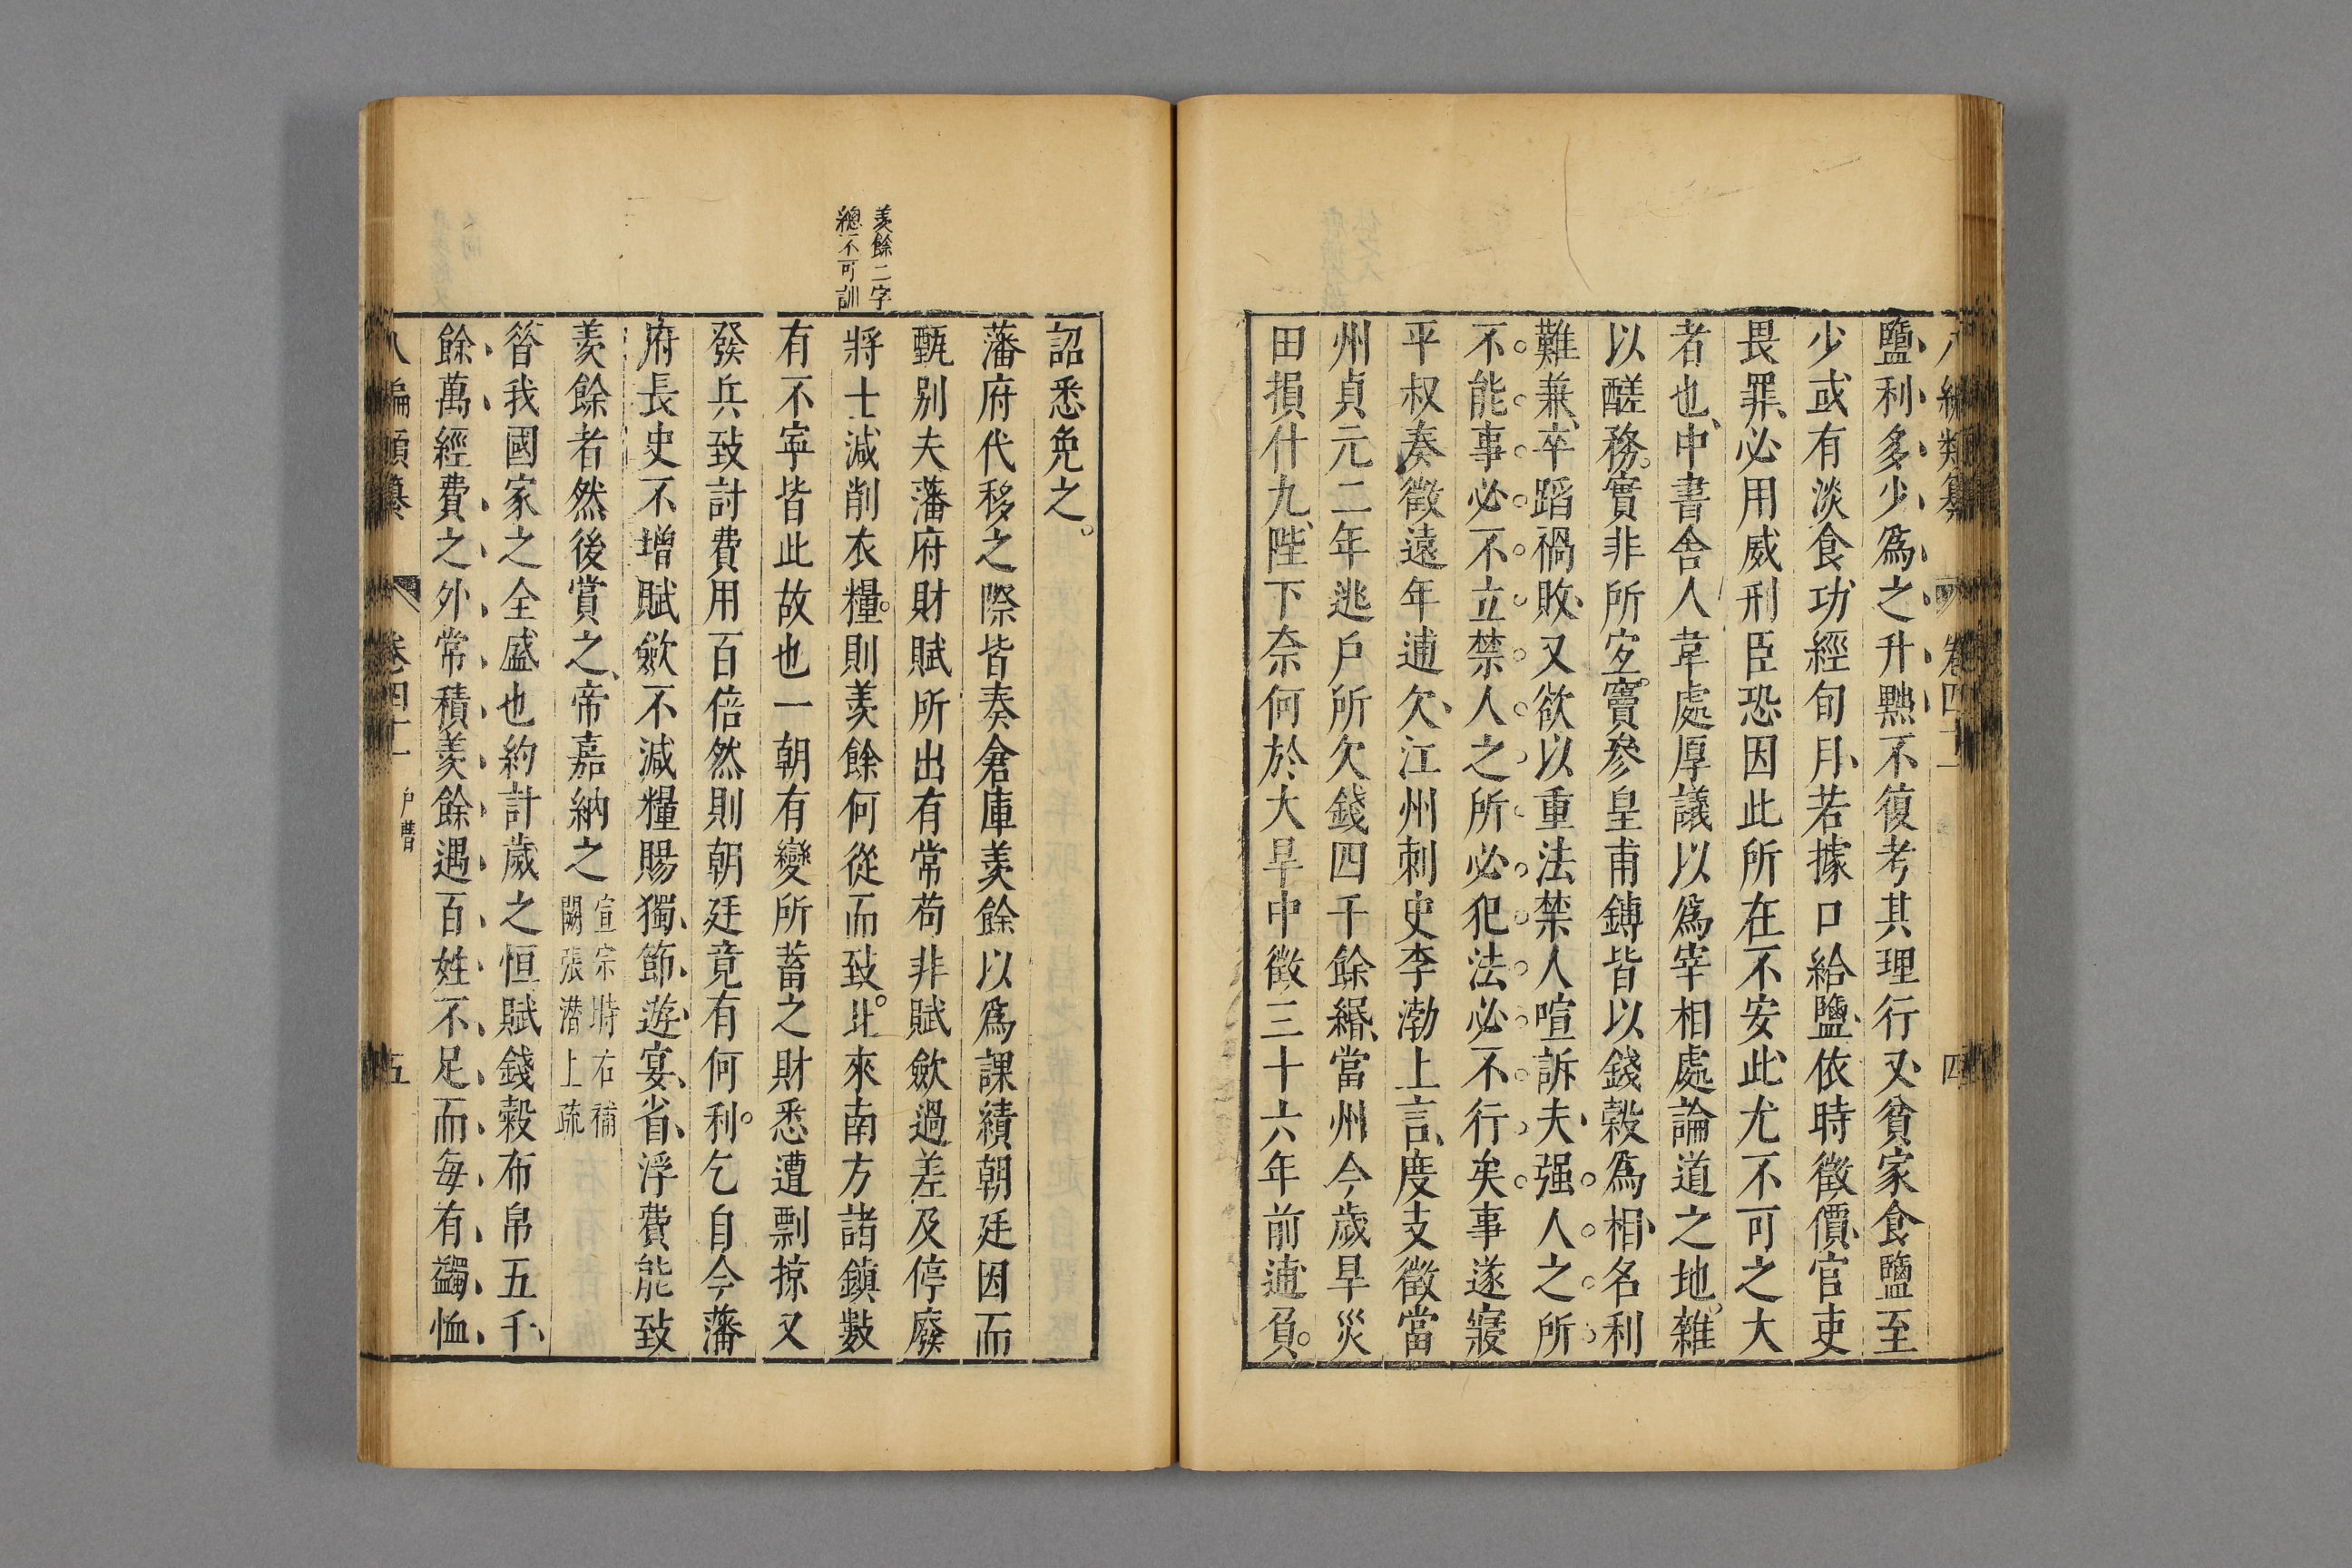 八編類纂 卷四十二 四
鹽利多少爲之升黜不復考其理行又貧家食鹽至
少或有淡食功經旬月若據口給鹽依時徵價官吏
畏罪必用威刑臣恐因此所在不安此尤不可之大
者也中書舍人韋處厚議以爲宰相處論道之地雜
以鹺務實非所宐竇參皇甫鎛皆以錢穀爲相名利
難兼卒蹈禍敗又欲以重法禁人喧訴夫强人之所
不能事必不立禁人之所必犯法必不行矣事遂寢
平叔奏徵遠年逋欠江州刺史李渤上言度支徵當
州貞元二年逃戶所欠錢四千餘緡當州今歲旱災
田損什九陛下奈何於大旱中徵三十六年前逋負
詔悉免之
藩府代移之際皆奏倉庫羨餘以爲課績朝廷因而
甄别夫藩府財賦所出有常苟非賦歛過差及停廢
將士減削衣糧則羨餘何從而致比來南方諸鎮數
有不寜皆此故也一朝有變所蓄之財悉遭剽掠又
發兵致討費用百倍然則朝廷竟有何利乞自今藩
府長史不增賦歛不減糧賜獨節遊宴省浮費能致
羨餘者然後賞之帝嘉納之 宣宗時右補
闕張潛上疏
昝我國家之全盛也約計歲之恒賦錢穀布帛五千
餘萬經費之外常積羨餘遇百姓不足而每有蠲恤
羨餘二字
緫不可訓
八編類纂 卷四十二 戶曹 五